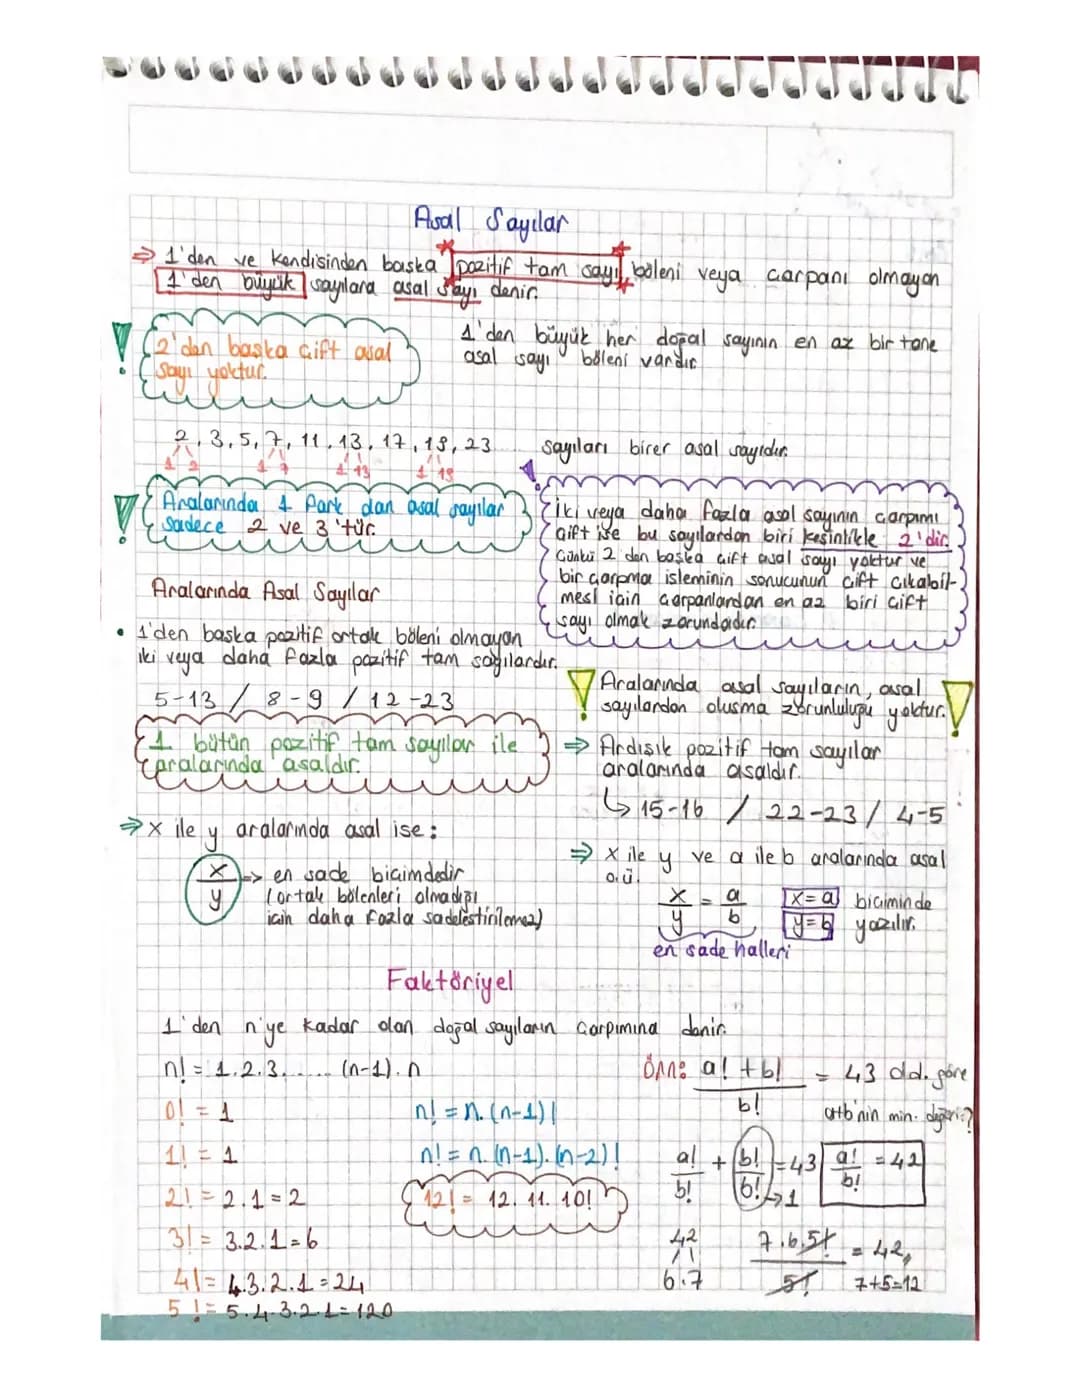 Asal Sayılar
⇒ 1'den ve kendisinden başka pozitif tam sayı böleni veya çarpanı olmayan
1'den büyük sayılara asal sayı denir.
2'dan başka çift asal
sayı yoktur.
1'den büyük her doğal sayının en az bir tane
asal sayı böleni vardır
2, 3, 5, 7, 11, 13, 17, 19, 23 sayıları birer asal sayıdır.
1 2 1 7 1 13 1 19
Aralarında 1 fark olan asal sayılar
sadece 2 ve 3'tür.
İki veya daha fazla asal sayının çarpımı
çift ise bu sayılardan biri kesinlikle 2'dir.
Çünkü 2 den başka çift asal sayı yoktur ve
bir çarpma işleminin sonucunun çift çıkabil-
mesi için çarpanlardan en az biri çift
sayı olmak zorundadır.
Aralarında Asal Sayılar
• 1'den başka pozitif ortak böleni olmayan
iki veya daha fazla pozitif tam sayılardır.
5-13 / 8-9 / 12-23
1 bütün pozitif tam sayılar ile
aralarında asaldır.
Aralarında asal sayıların, asal
sayılardan oluşma zorunluluğu yoktur.
⇒ Ardışık pozitif tam sayılar
aralarında asaldır.
↳ 15-16 / 22-23 / 4-5
⇒ x ile y aralarında asal ise:
x/y → en sade biçimdedir
(ortak bölenleri olmadığı
için daha fazla sadeleştirilemez)
⇒ x ile y ve a ile b aralarında asal
o.ü.
x/y = a/b x=a biçiminde
y=b yazılır.
en sade halleri
Faktöriyel
1'den n'ye kadar olan doğal sayıların çarpımına denir.
n! = 1.2.3. ..... (n-1).n
0! = 1
1! = 1
2! = 2.1 = 2
3! = 3.2.1 = 6
4! = 4.3.2.1 = 24
5! = 5.4.3.2.1 = 120
n! = n.(n-1)!
n! = n.(n-1).(n-2)!
12! = 12.11.10!
Örn: a!+b!/b! = 43 old. göre
a+b'nin min. değeri?
a!/b! + b!/b! = 43 a!/b! = 42
↳1
42
6.7
7.6.5!/5! = 42,
7+5=12